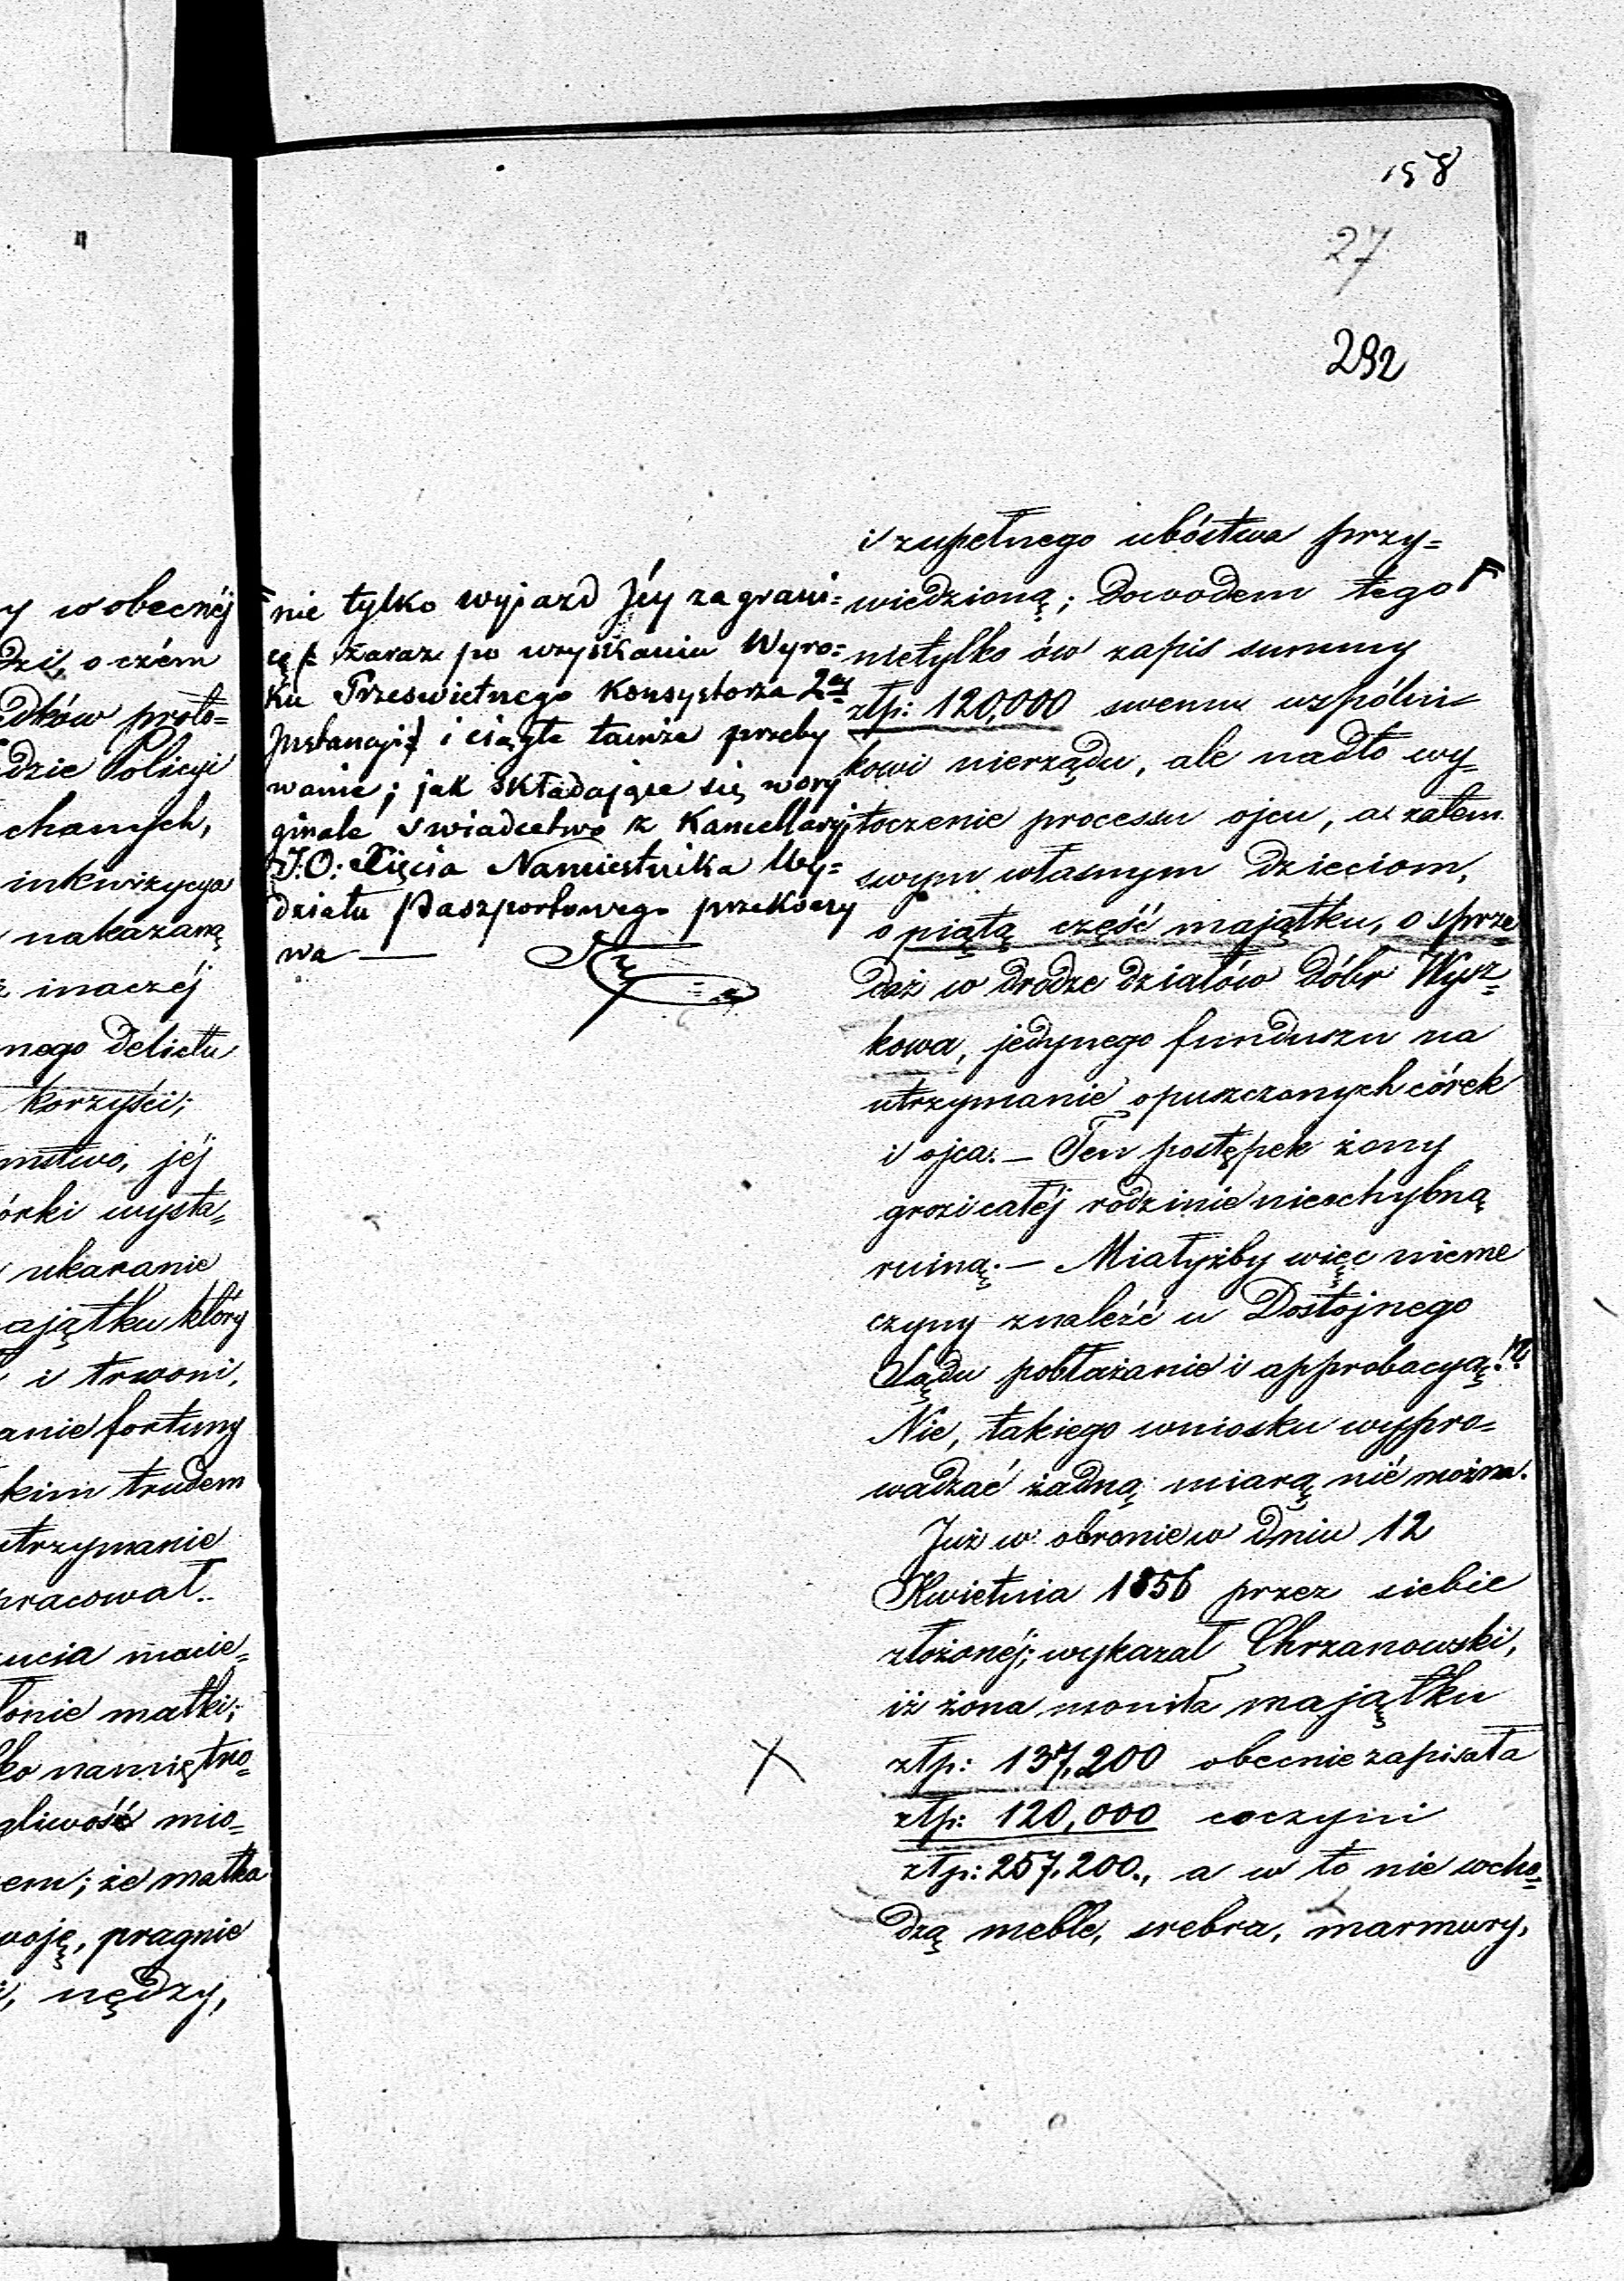 158
27
292
y w obecnéj
dzi, o czém
dków proto=
dzie Policyi
chanych,
inkwizycya
nakazaną
inaczéj
nego delictu
korzyści;
mstwo, jéj
órki wysta=
ukaranie
ajątku który
i trwoni,
anie fortuny
kim trudem
utrzymanie
pracował.
ucia macie=
łonie matki;
ko namiętno=
gliwość mio=
em; że matka
woję, pragnie
nędzy,
nie tylko wyjazd Jéy za grani=
cę zaraz po uzyskaniu Wyro=
ku Prześwietnego Konsystorza 2éj
Instancyi i ciągłe tamże przeby
wanie; jak składające się w ory
ginale świadectwo z Kancellaryi
J.O: Xięcia Namiestnika Wy=
działu Paszportowego przekony
wa —
i zupełnego ubóstwa przy=
wiedzioną; dowodem tego
nietylko ów zapis summy
złp: 120,000 swemu wspólni=
kowi nierządu, ale nadto wy=
toczenie processu ojcu, a zatem
swym własnym dzieciom,
o piątą część majątku, o sprze=
daż w drodze działów dóbr Wysz=
kowa, jedynego funduszu na
utrzymanie opuszczonych córek
i ojca. — Ten postępek żony
grozi całéj rodzinie nieochybną
ruiną. — Miałyżby więc niecne
czyny znaleźć u Dostojnego
Sądu pobłażanie i approbacyą!?
Nie, takiego wniosku wypro=
wadzać żadną miarą nié można.
Już w obronie w dniu 12
Kwietnia 1856 przez siebie
złożonéj; wykazał Chrzanowski,
iż żona uroniła majątku
złp: 137,200 obecnie zapisała
złp: 120,000 co czyni
złp: 257,200., a w to nie wcho=
dzą meble, srebra, marmury,